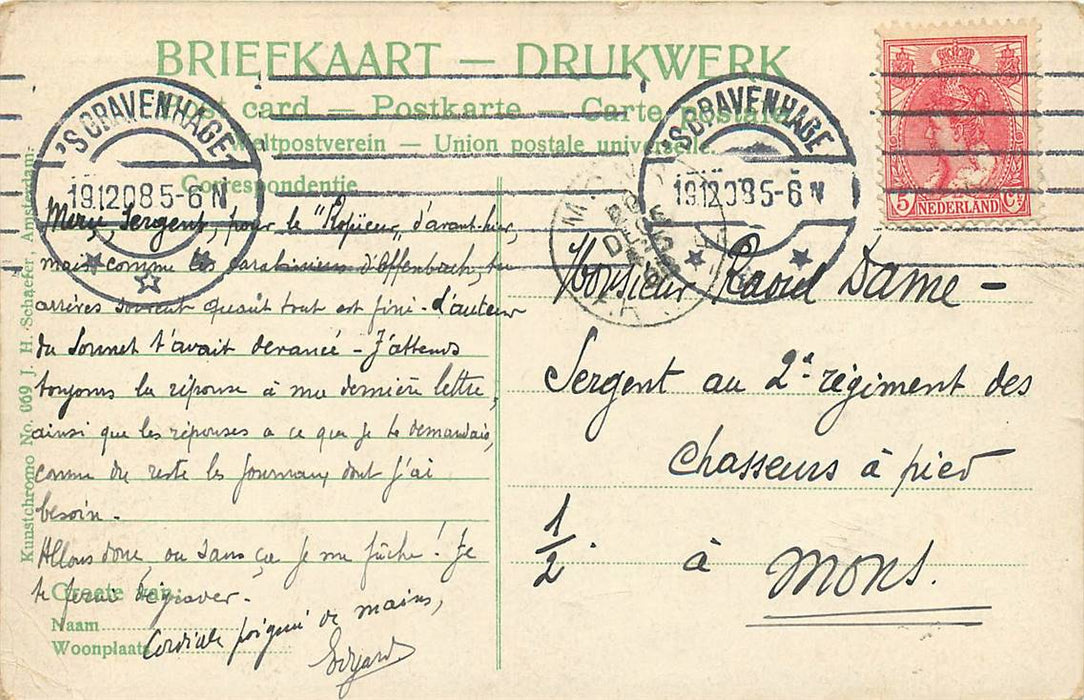 BRIEFKAART — DRUKWERK
Post card — Postkarte — Carte postale
Weltpostverein — Union postale universelle.
'S GRAVENHAGE
19.12.08 5-6 N
'S GRAVENHAGE
19.12.08 5-6 N
5 NEDERLAND Ct
Correspondentie
Merci, Sergent, pour le " " d'avant-hier,
mais comme les carabiniers d'Offenbach, tu
arrives souvent quand tout est fini - L'auteur
du Sonnet t'avait devancé - J'attends
toujours la réponse à ma dernière lettre,
ainsi que les réponses à ce que je te demandais,
comme du reste les journaux dont j'ai
besoin -
Allons donc, ou sans ça je me fâche! Je
te ferai dégrader -
Cordiale poignée de mains,
Edgard
Groete aan:
Naam
Woonplaats
Kunstchromo No. 669 J. H. Schaefer, Amsterdam.
Monsieur Raoul Dame -
Sergent au 2e régiment des
Chasseurs à pied
1/2. à Mons.